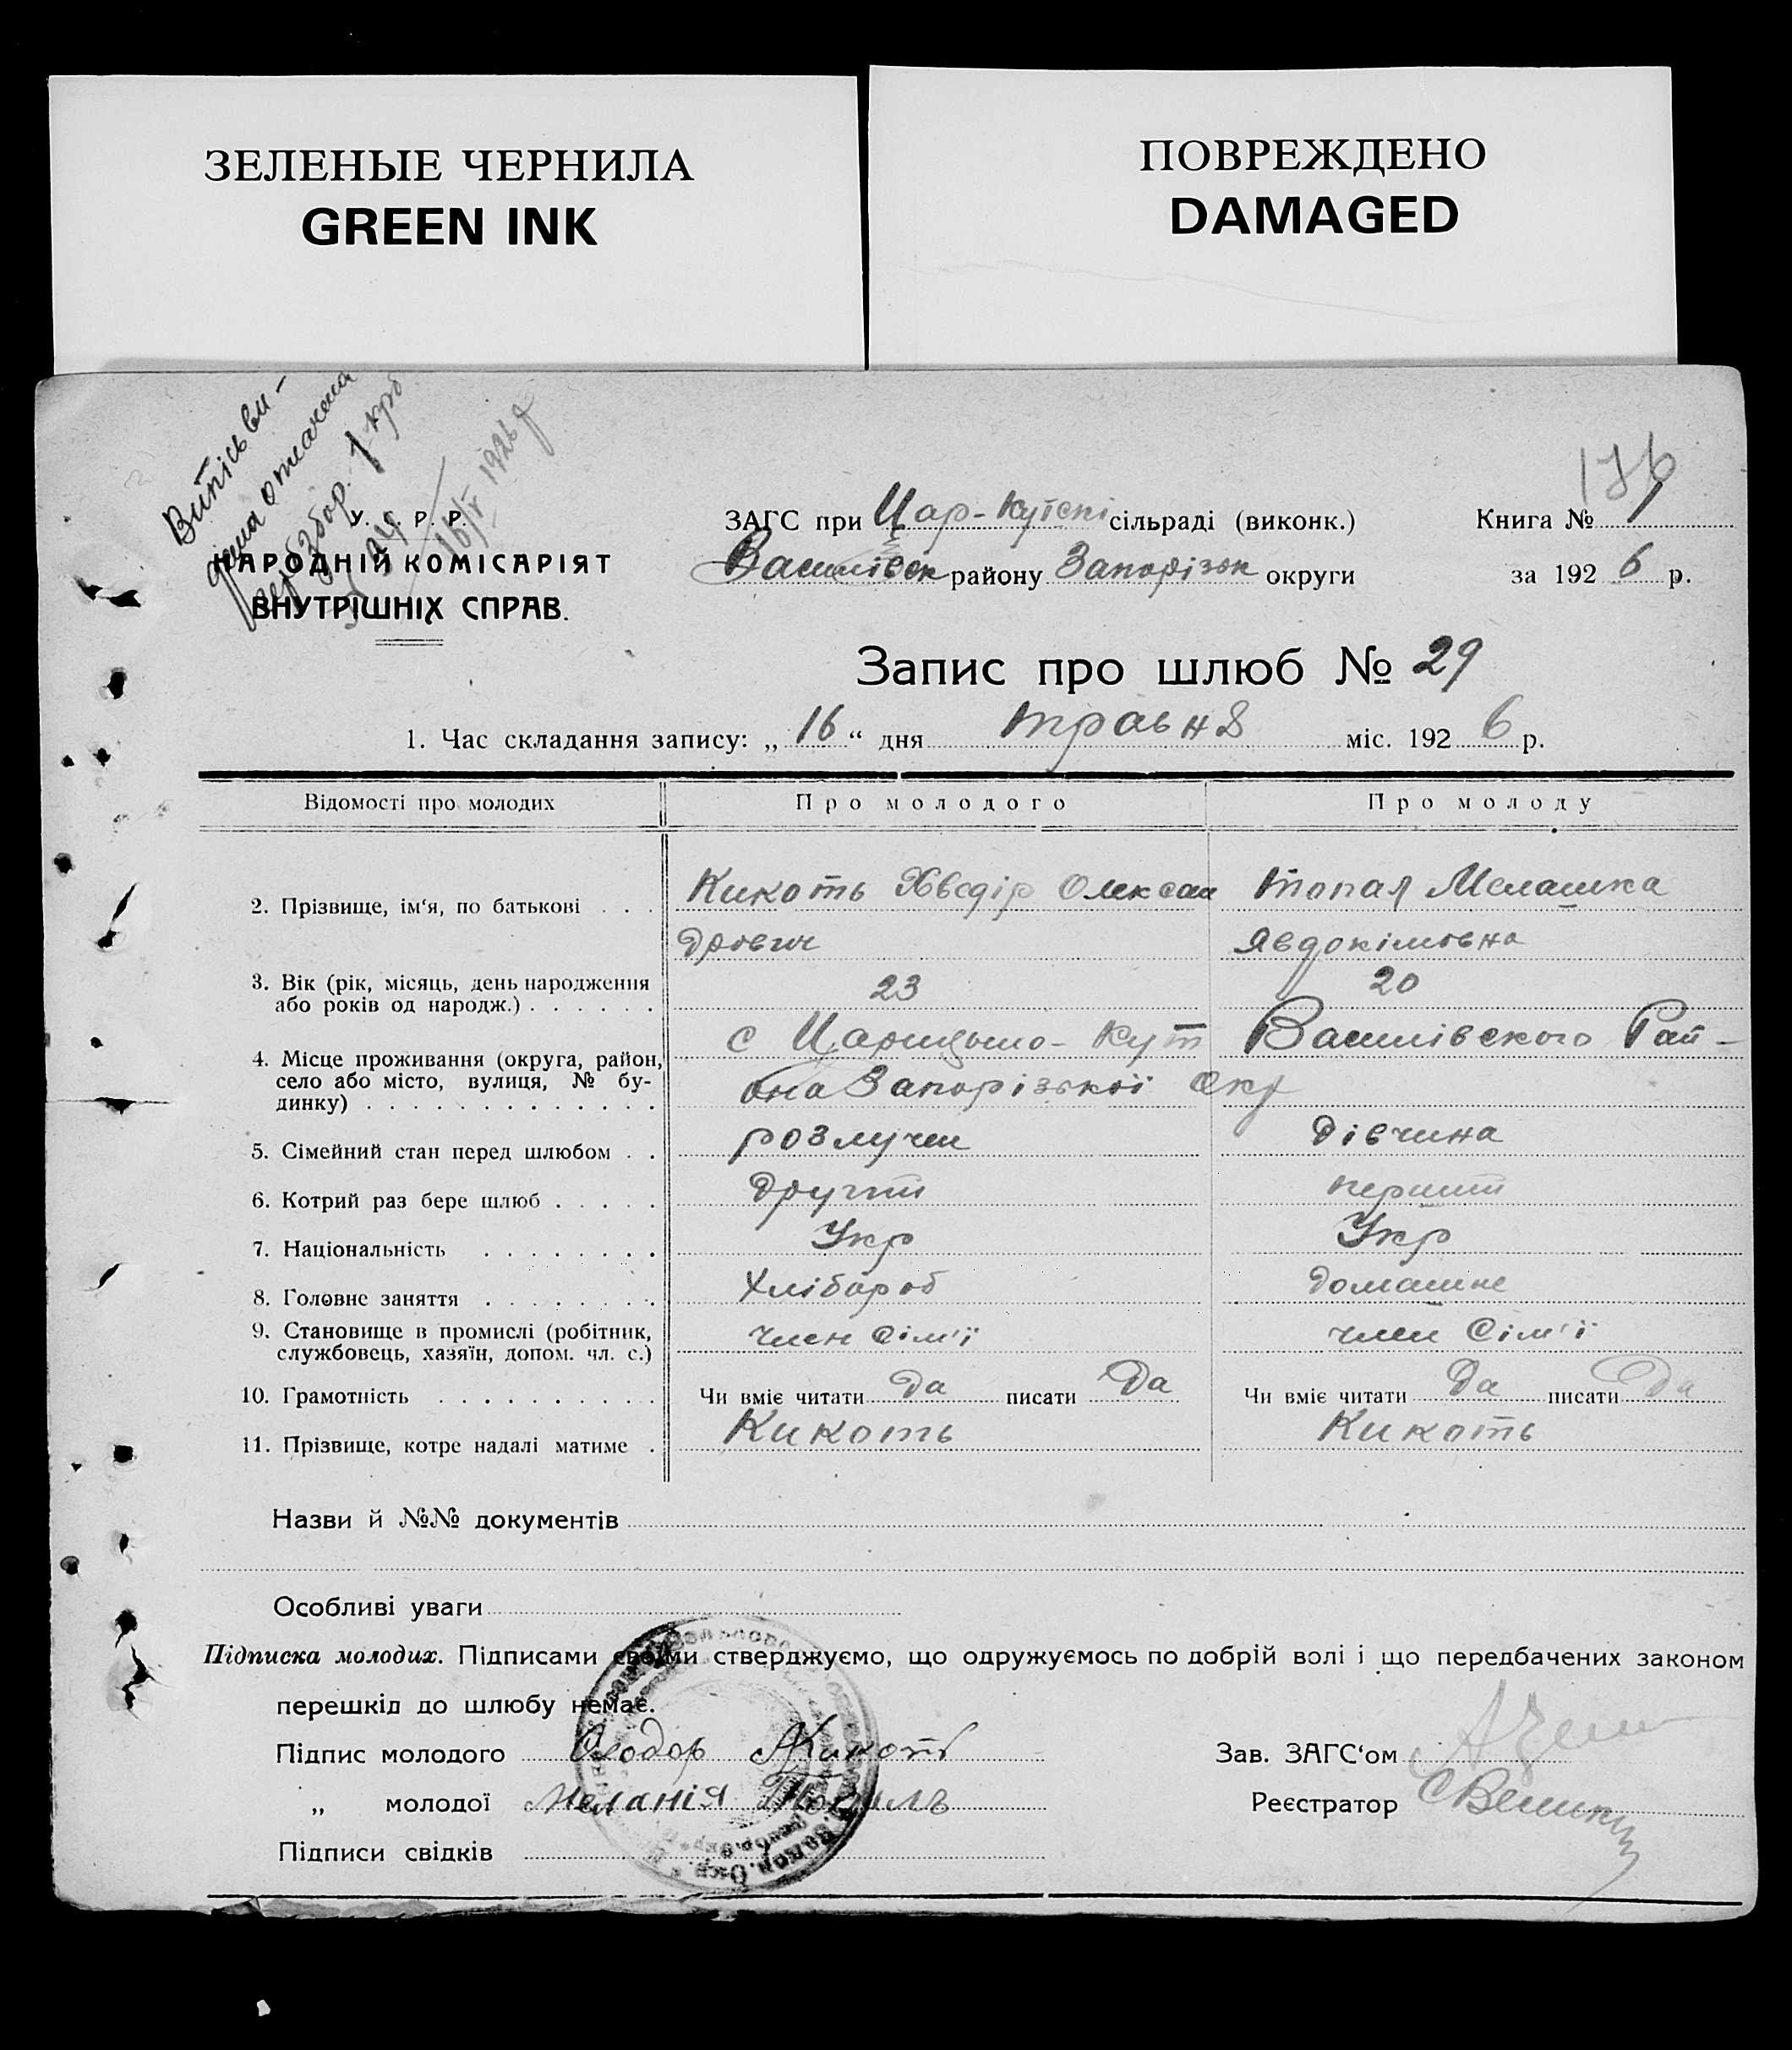 ЗЕЛЕНЫЕ ЧЕРНИЛА
GREEN INK
ПОВРЕЖДЕНО
DAMAGED
Випісь ви-
дана оплачена
гербзбор. 1 крб
16/V 1926 р
176
У. С. Р. Р.
НАРОДНІЙ КОМІСАРІЯТ
ВНУТРІШНІХ СПРАВ.
ЗАГС при Цар-Кутскі сільраді (виконк.)
Книга № 1
Василівск району Запорізск округи
за 1926 р.
Запис про шлюб № 29
1. Час складання запису: „16“ дня травня міс. 1926 р.
Відомості про молодих Про молодого Про молоду
2. Прізвище, ім'я, по батькові . . . Кикоть Хведір Олексан Топал Мелашка
дрович Явдокімовна
3. Вік (рік, місяць, день народження
або років од народж.) . . . . . . 23 20
4. Місце проживання (округа, район, с Царицыно-Кут Василівского Рай-
село або місто, вулиця, № бу-
динку) . . . . . . . . . . . . . она Запорізької Окр
5. Сімейний стан перед шлюбом . . розлучен дівчина
6. Котрий раз бере шлюб . . . . . другий перший
7. Національність . . . . . . . . Укр Укр
8. Головне заняття . . . . . . . . Хлібороб домашне
9. Становище в промислі (робітник,
службовець, хазяїн, допом. чл. с.) член Сім'ї член Сім'ї
10. Грамотність . . . . . . . . . . Чи вміє читати да писати Да Чи вміє читати Да писати Да
11. Прізвище, котре надалі матиме . Кикоть Кикоть
Назви й №№ документів
Особливі уваги
Підписка молодих. Підписами своїми стверджуємо, що одружуємось по добрій волі і що передбачених законом
перешкід до шлюбу немає.
Підпис молодого Кикоть
Зав. ЗАГС'ом
„ молодої Меланія
Реєстратор
Підписи свідків